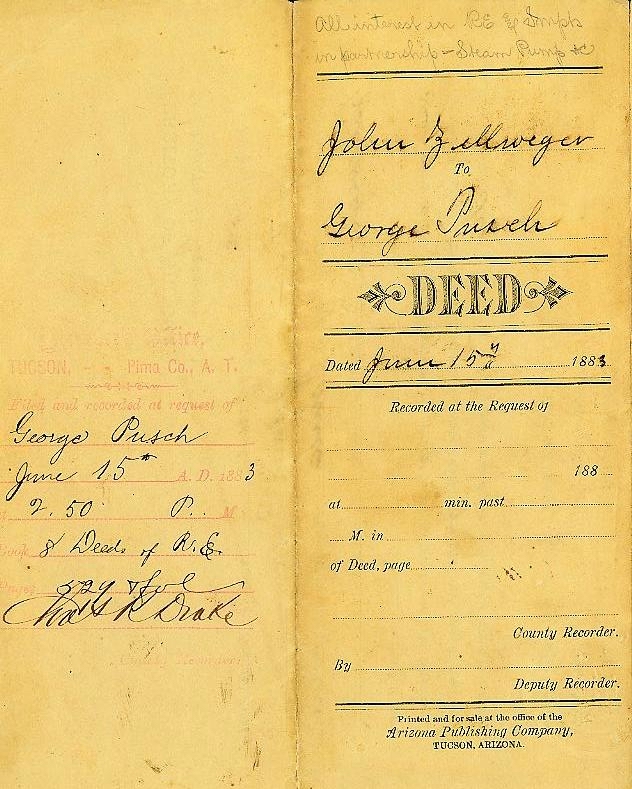 Office,
TUCSON, Pima Co., A. T.
Filed and recorded at request of
George Pusch
June 15th A. D. 1883
at 2.50 P. M
Book 8 Deeds of R. E.
Pages 529 & fol
Chas R Drake
County Recorder.
All interest in RE &
in partnership - Steam Pump &c
John Zellweger
To
George Pusch
DEED
Dated June 15th 1883
Recorded at the Request of
188
at min. past
M. in
of Deed, page
County Recorder.
By
Deputy Recorder.
Printed and for sale at the office of the
Arizona Publishing Company,
TUCSON, ARIZONA.